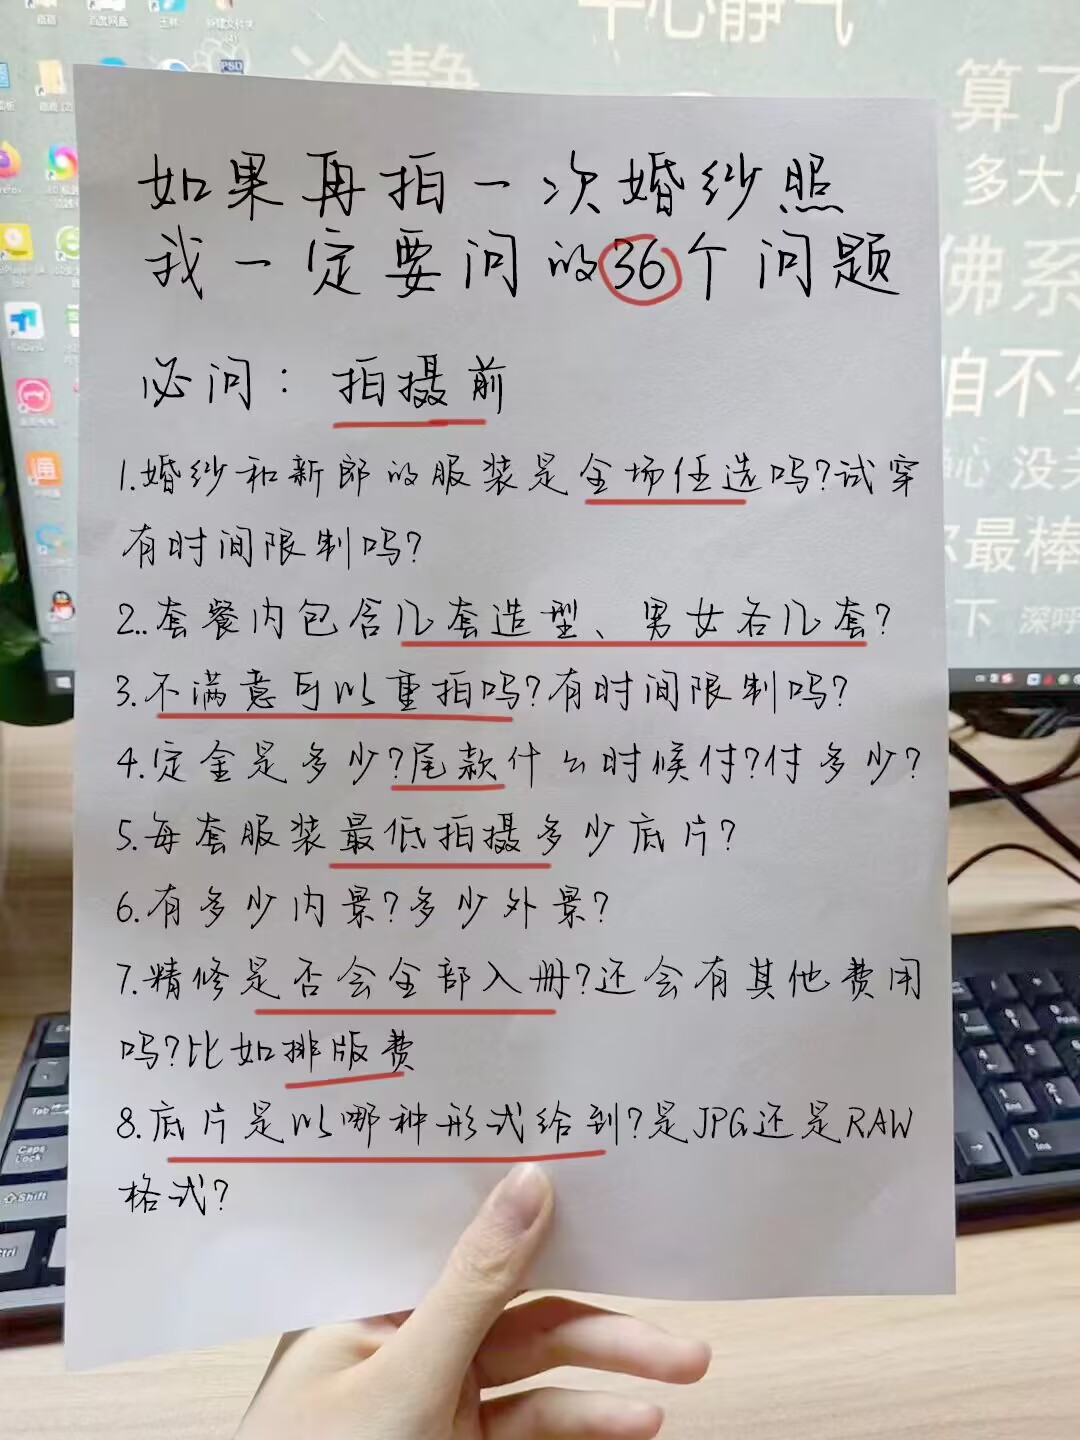 平心静气
冷静
算了
多大点
佛系
咱不生
没关
你最棒
下 深呼
如果再拍一次婚纱照
我一定要问的36个问题
必问：拍摄前
1.婚纱和新郎的服装是全场任选吗?试穿
有时间限制吗?
2..套餐内包含几套造型、男女各几套?
3.不满意可以重拍吗?有时间限制吗?
4.定金是多少?尾款什么时候付?付多少?
5.每套服装最低拍摄多少底片?
6.有多少内景?多少外景?
7.精修是否会全部入册?还会有其他费用
吗?比如排版费
8.底片是以哪种形式给到?是JPG还是RAW
格式?
PSD
Tab
Caps
Lock
Shift
Ctrl
7
Home
8
9
4
5
6
1
End
2
3
0
Ins